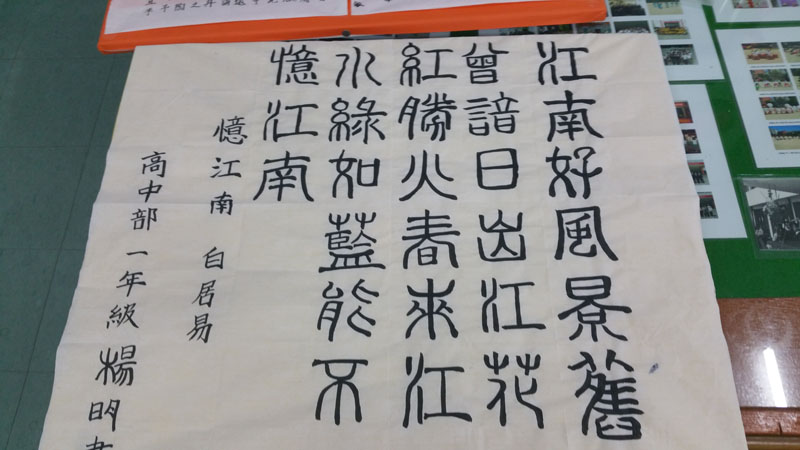 江南好風景舊
曾諳日出江花
紅勝火春來江
水綠如藍能不
憶江南
憶江南 白居易
高中部 一年級 楊明